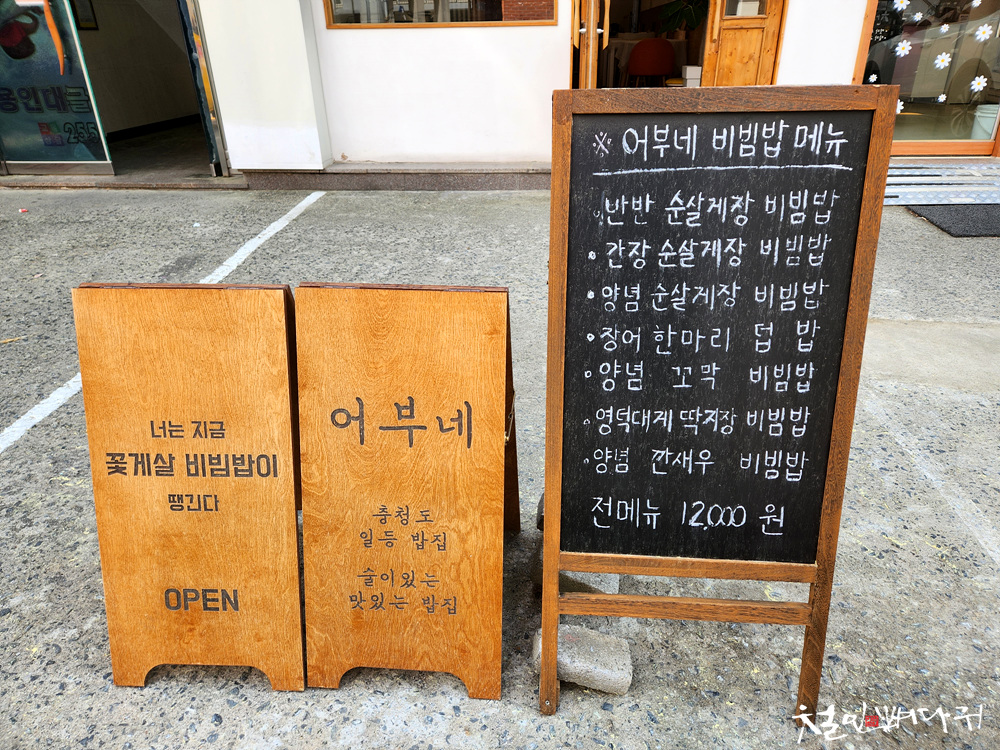 너는 지금
꽃게살 비빔밥이
땡긴다
OPEN
어부네
충청도
일등 밥집
술이있는
맛있는 밥집
※ 어부네 비빔밥 메뉴
반반 순살게장 비빔밥
간장 순살게장 비빔밥
양념 순살게장 비빔밥
장어 한마리 덥밥
양념 꼬막 비빔밥
영덕대게 딱지장 비빔밥
양념 깐새우 비빔밥
전메뉴 12,000 원
255